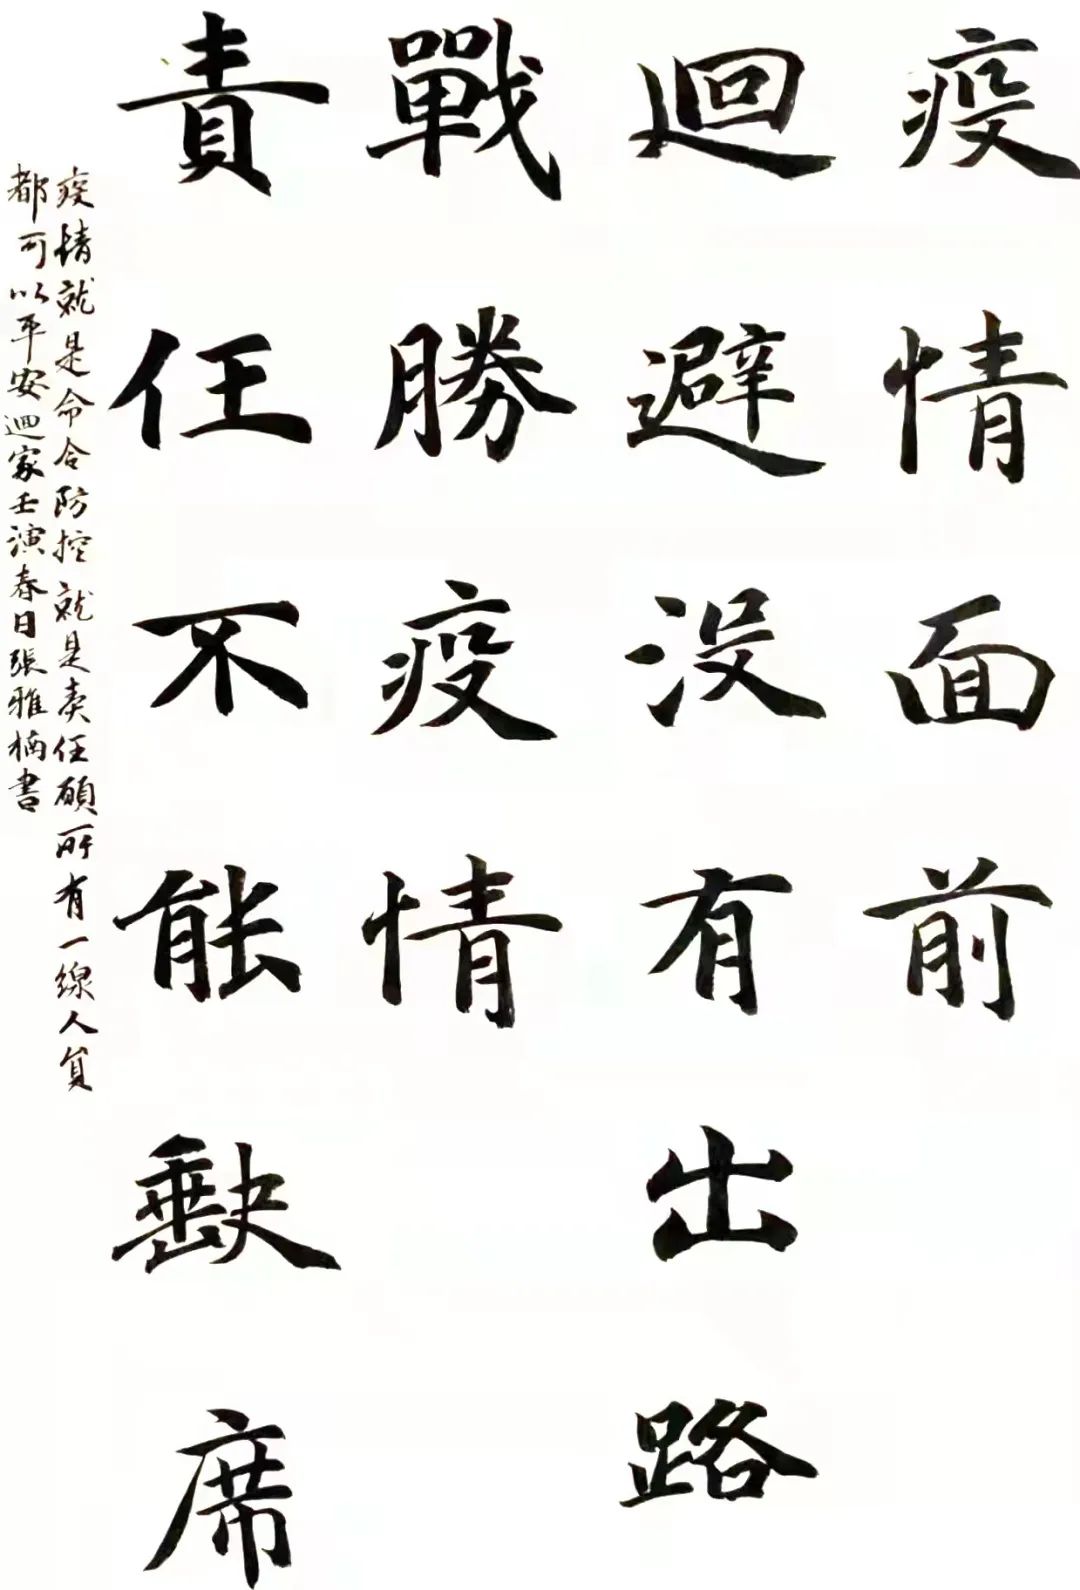 疫情面前
迴避没有出路
戰勝疫情
責任不能缺席
疫情就是命令防控就是责任願所有一線人員
都可以平安迴家壬演春日張雅楠書